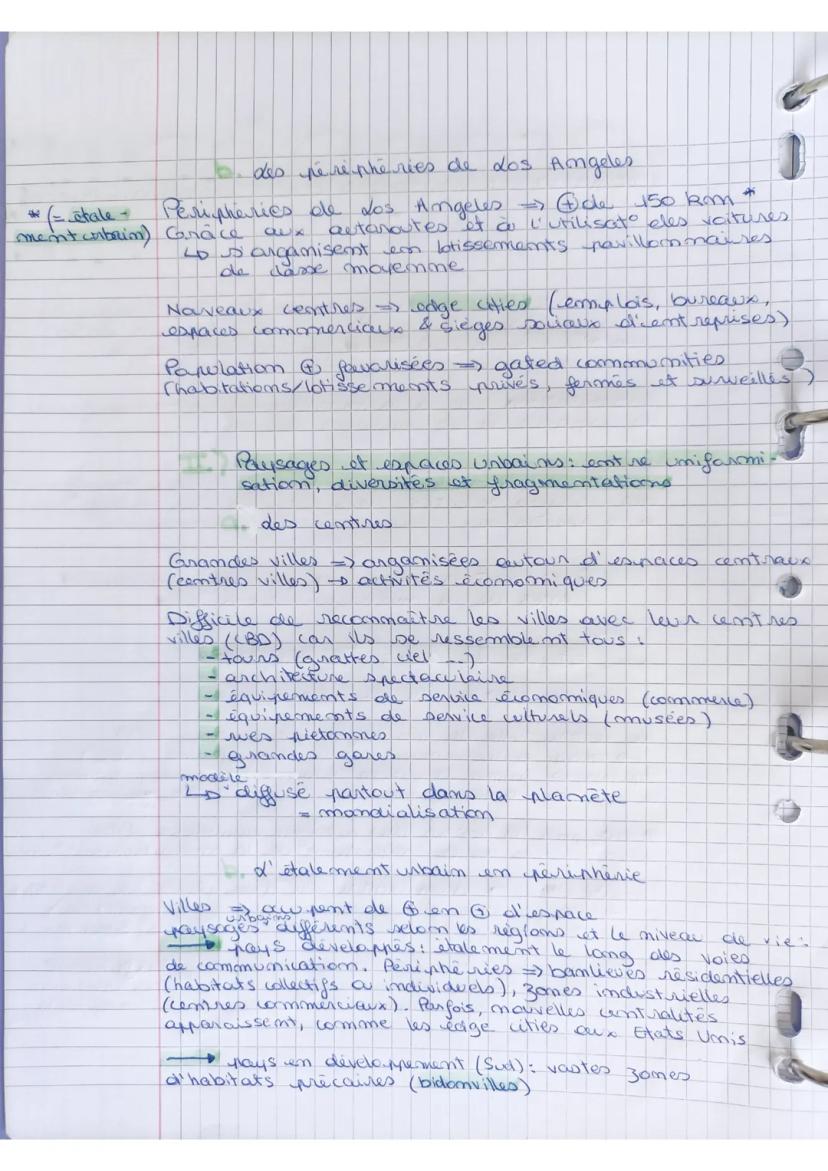 b. Les périphéries de Los Angeles
Périphéries de Los Angeles => ⊕ de 150 km *
* (= étale-
ment urbain)
Grâce aux autoroutes et à l'utilisat° des voitures
↳ s'organisent en lotissements pavillonnaires
de classe moyenne
Nouveaux centres => edge cities (emplois, bureaux,
espaces commerciaux & sièges sociaux d'entreprises)
Population ⊕ favorisées => gated communities
(habitations/lotissements privés, fermés et surveillés)
II.) Paysages et espaces urbains : entre uniformi-
sation, diversités et fragmentations
a. Les centres
Grandes villes => organisées autour d'espaces centraux
(centres villes) → activités économiques
Difficile de reconnaître les villes avec leur centres
villes (CBD) car ils se ressemblent tous :
- tours (grattes ciel ...)
- architecture spectaculaire
- équipements de service économiques (commerce)
- équipements de service culturels (musées)
- rues piétonnes
- grandes gares
modèle
↳ diffusé partout dans la planète
= mondialisation
b. L'étalement urbain en périphérie
Villes => occupent de ⊕ en ⊕ d'espace
urbains
paysages différents selon les régions et le niveau de vie :
→ pays développés : étalement le long des voies
de communication. Périphéries => banlieues résidentielles
(habitats collectifs ou individuels), zones industrielles
(centres commerciaux). Parfois, nouvelles centralités
apparaissent, comme les edge cities aux Etats Unis
→ pays en développement (Sud) : vastes zones
d'habitats précaires (bidonvilles)